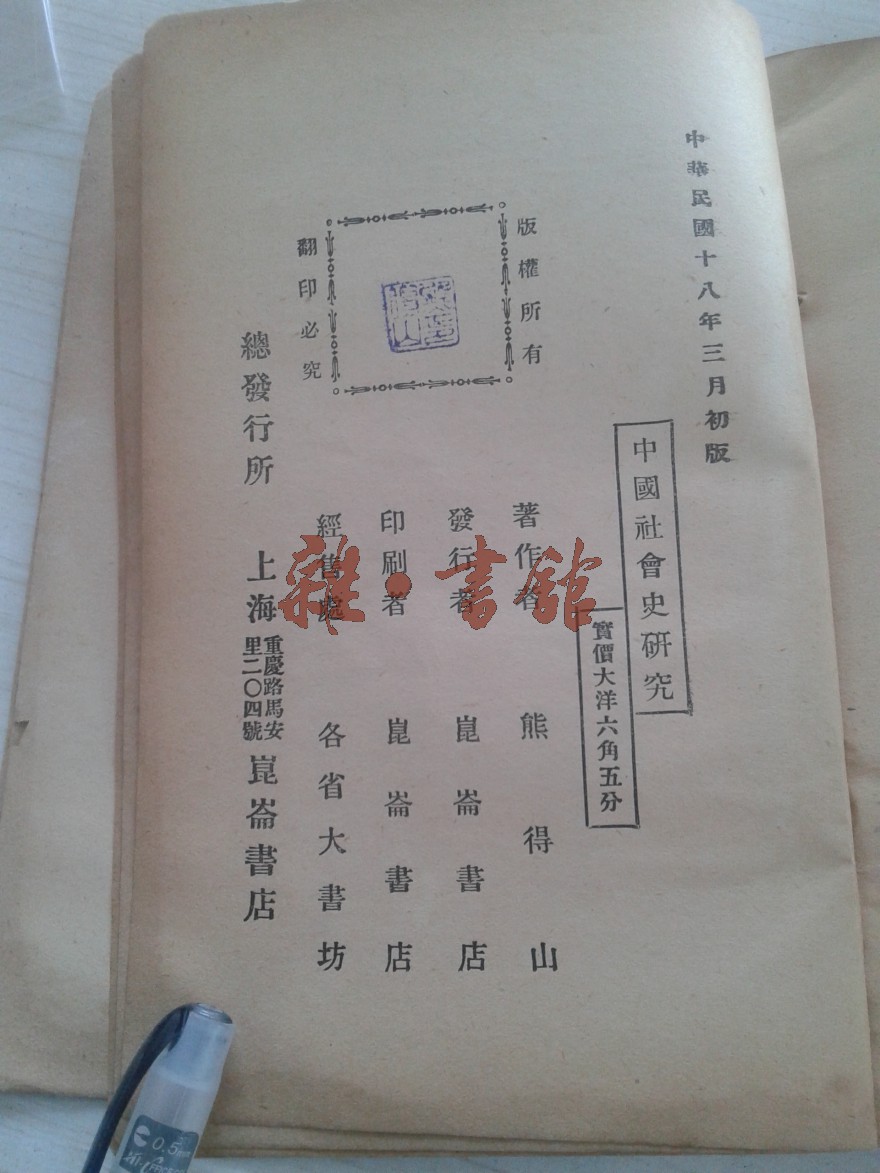 中華民國十八年三月初版
中國社會史研究
實價大洋六角五分
版權所有
翻印必究
著作者 熊得山
發行者 崑崙書店
印刷者 崑崙書店
經售處 各省大書坊
總發行所 上海重慶路馬安里二〇四號崑崙書店
雜·書館
0.5